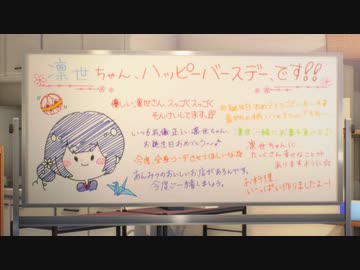 凛世ちゃん、ハッピーバースデー、です!!
優しい凛世さん、スっごくスっごく
そんけいしてます。
お誕生日おめでとうございまーす
いつもお儀正しい凛世ちゃん、
お誕生日おめでとう〜。
今度、全身コーデさせてほしいな☆
凛世ちゃんに
たくさん幸せなことが
ありますように☆
あんみつのおいしいお店があるんです。
今度ご一緒しましょう。
お料理
いっぱい作りましたよー!